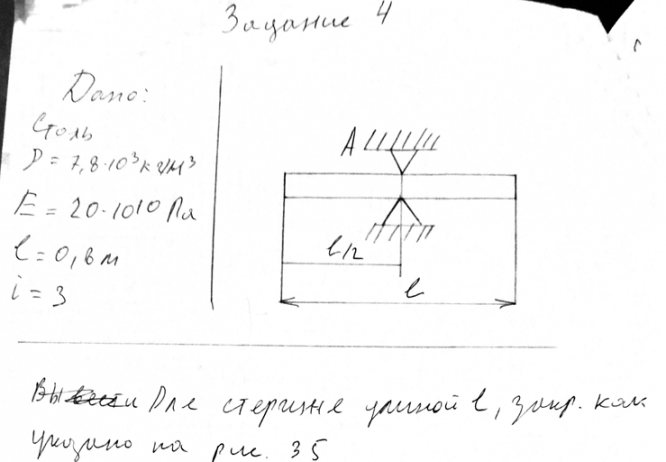 Задание 4
Дано:
Сталь
ρ = 7,8·10³ кг/м³
E = 20·10¹⁰ Па
l = 0,8 м
i = 3
A
l/2
l
Для стержне длиной l, закр. как
указано на рис. 35